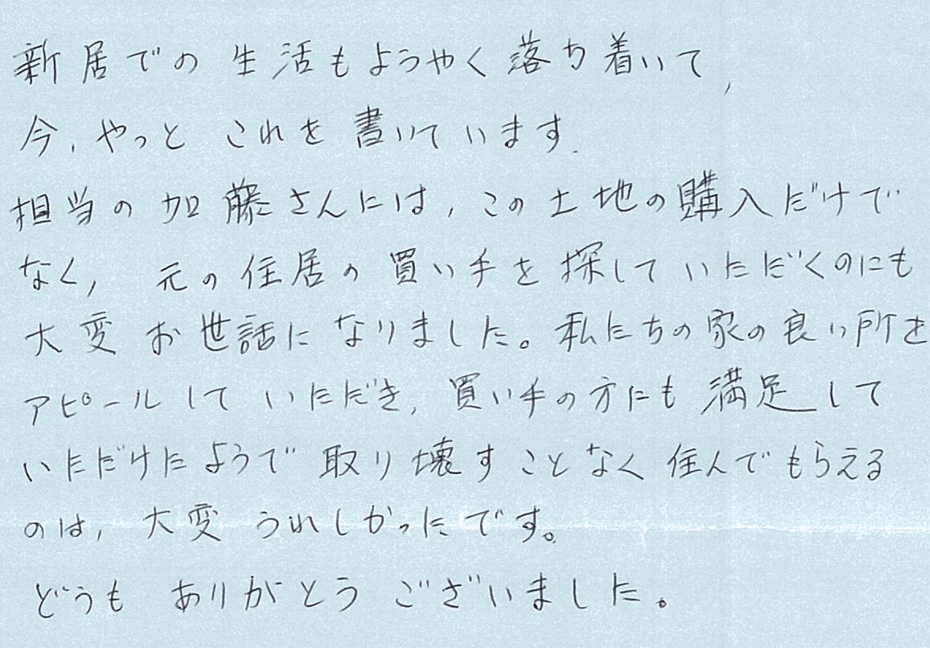 新居での生活もようやく落ち着いて,
今,やっとこれを書いています.
担当の加藤さんには,この土地の購入だけで
なく,元の住居の買い手を探していただくのにも
大変お世話になりました。私たちの家の良い所を
アピールしていただき,買い手の方にも満足して
いただけたようで取り壊すことなく住んでもらえる
のは,大変うれしかったです。
どうもありがとうございました。